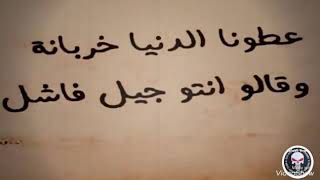 عطونا الدنيا خربانة
وقالو انتو جيل فاشل